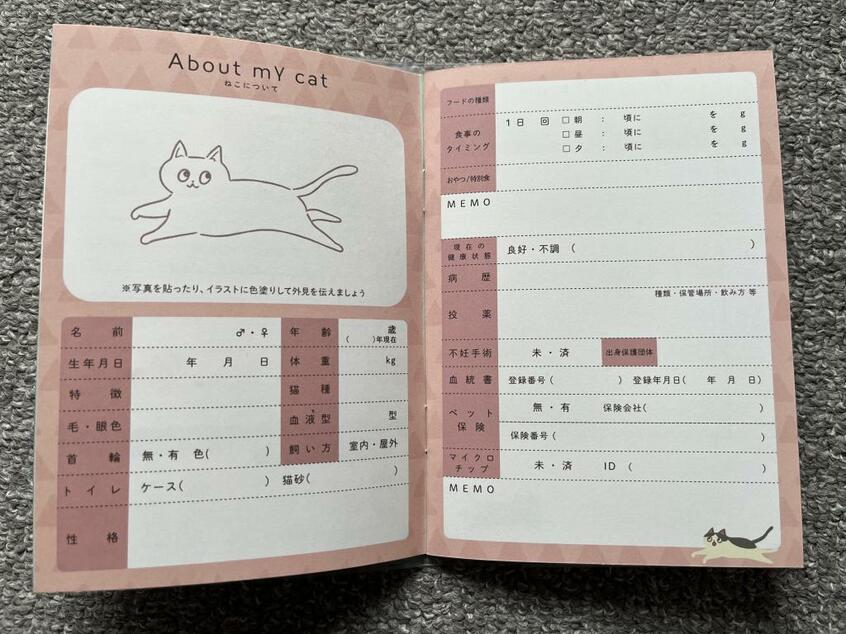 About my cat
ねこについて
※写真を貼ったり、イラストに色塗りして外見を伝えましょう
名前 ♂・♀ 年齢 歳
( )年現在
生年月日 年 月 日 体重 kg
特徴 猫種
毛・眼色 血液型 型
首輪 無・有 色( ) 飼い方 室内・屋外
トイレ ケース( ) 猫砂( )
性格
フードの種類
食事の
タイミング
1日 回 □朝 : 頃に を g
□昼 : 頃に を g
□夕 : 頃に を g
おやつ/特別食
MEMO
現在の
健康状態
良好・不調 ( )
病歴
投薬 種類・保管場所・飲み方 等
不妊手術 未・済 出身保護団体
血統書 登録番号( ) 登録年月日( 年 月 日)
ペット
保険
無・有 保険会社( )
保険番号( )
マイクロ
チップ
未・済 ID ( )
MEMO